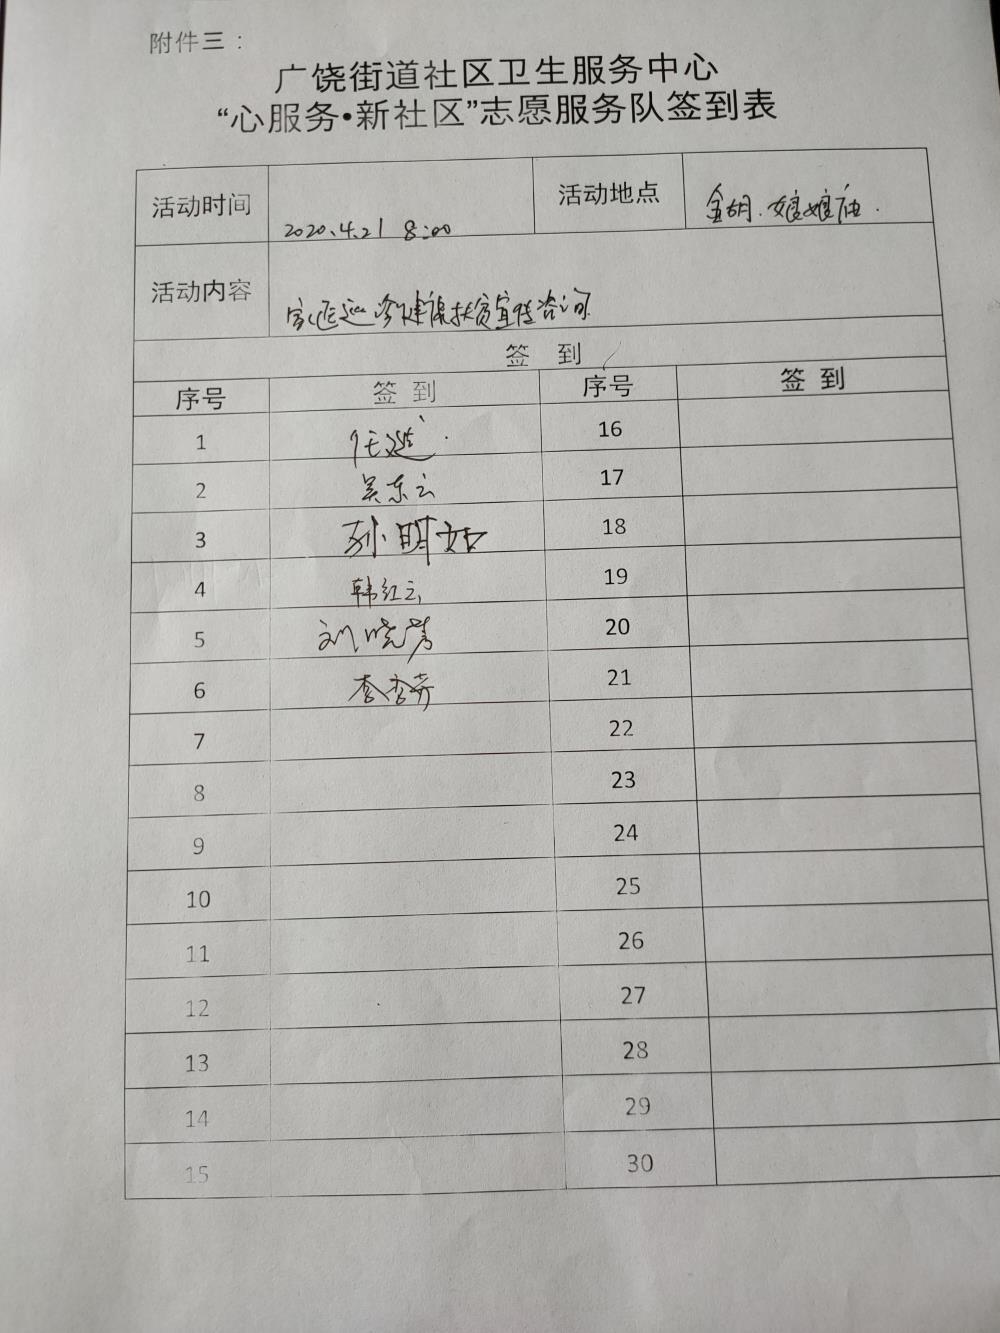 附件三：
广饶街道社区卫生服务中心
“心服务•新社区”志愿服务队签到表
活动时间 2020.4.21 8:00 活动地点 金胡.娘娘庙.
活动内容 家医巡诊健康扶贫宣传咨询
签 到
序号 签 到 序号 签 到
1 16
2 吴东云 17
3 孙明如 18
4 韩红云 19
5 刘晓 20
6 李杏芳 21
7 22
8 23
9 24
10 25
11 26
12 27
13 28
14 29
15 30